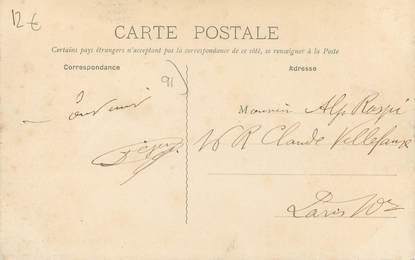 12 €
CARTE POSTALE
Certains pays étrangers n'acceptant pas la correspondance de ce côté, se renseigner à la Poste
Correspondance
91
Adresse
Souvenir
Monsieur Alf
16 R Claude Villefaux
Paris